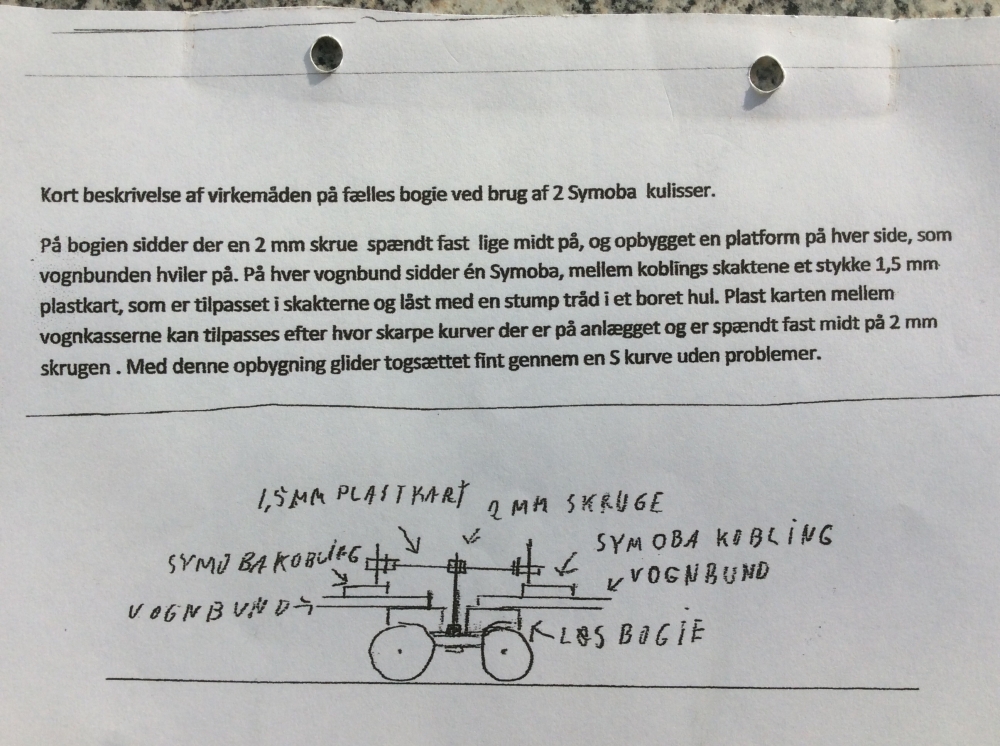 Kort beskrivelse af virkemåden på fælles bogie ved brug af 2 Symoba kulisser.
På bogien sidder der en 2 mm skrue spændt fast lige midt på, og opbygget en platform på hver side, som
vognbunden hviler på. På hver vognbund sidder én Symoba, mellem koblings skaktene et stykke 1,5 mm
plastkart, som er tilpasset i skakterne og låst med en stump tråd i et boret hul. Plast karten mellem
vognkasserne kan tilpasses efter hvor skarpe kurver der er på anlægget og er spændt fast midt på 2 mm
skrugen . Med denne opbygning glider togsættet fint gennem en S kurve uden problemer.
1,5MM PLASTKART
2 MM SKRUGE
SYMOBA KOBLING
SYMOBA KOBLING
VOGNBUND
VOGNBUND
LØS BOGIE